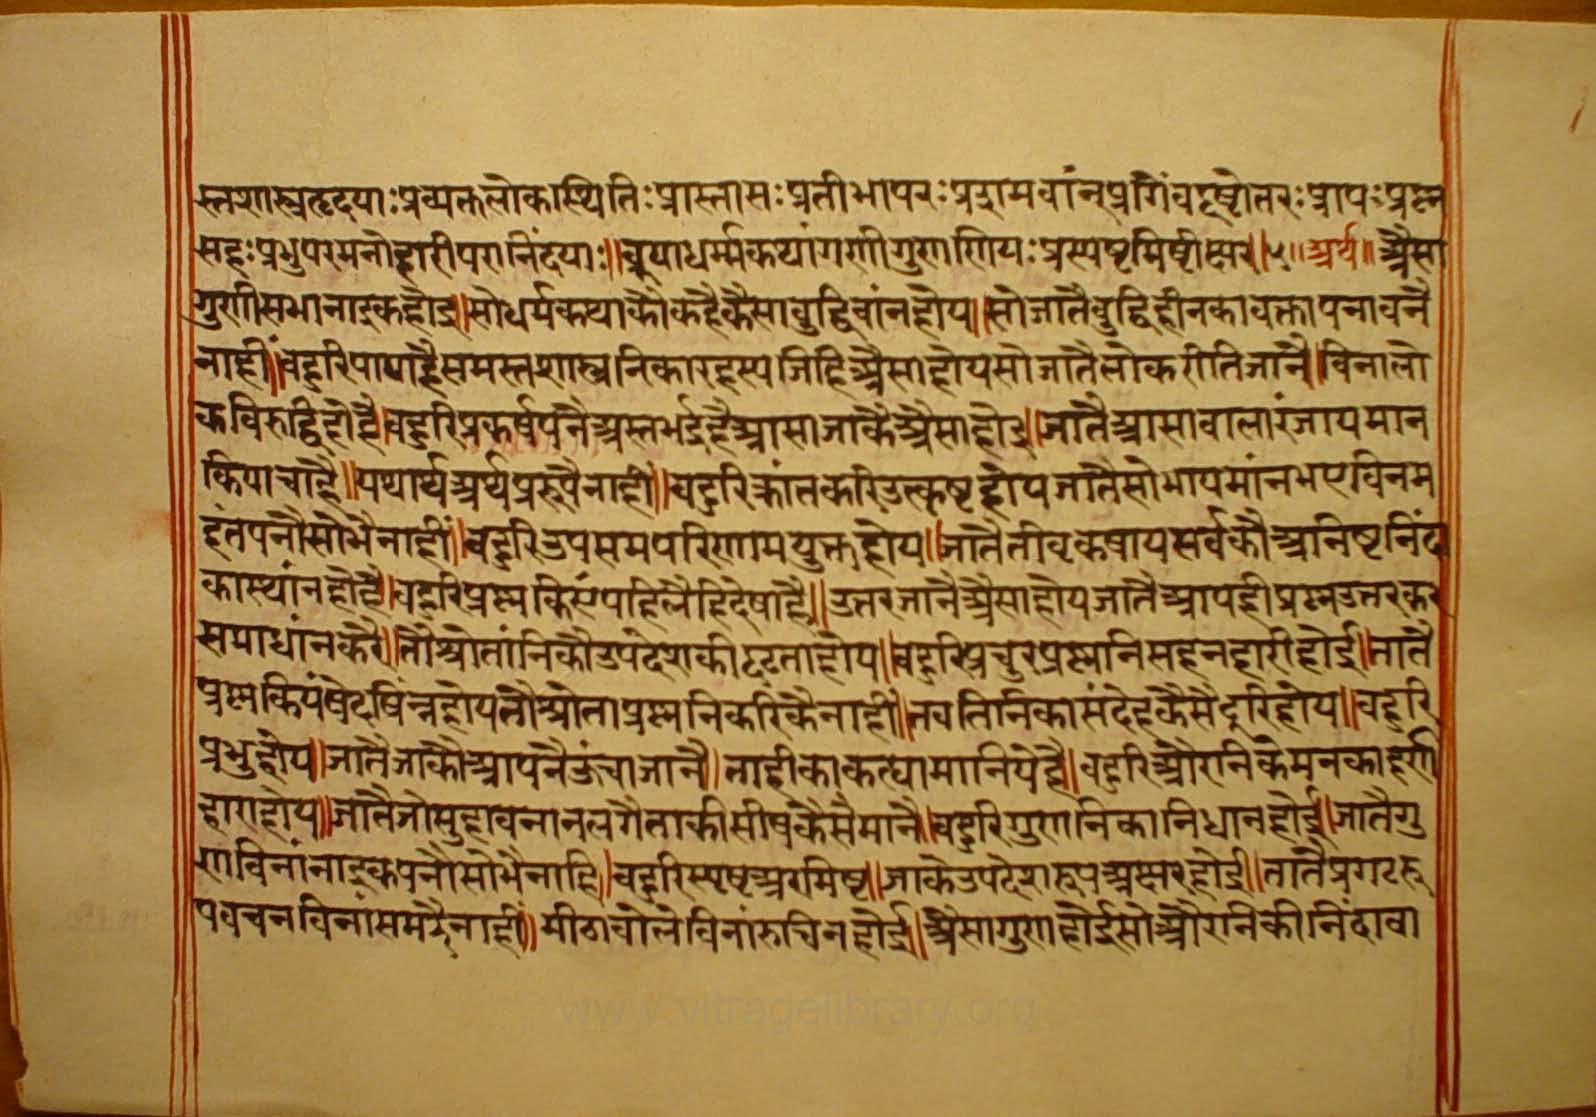 स्तशास्त्रहृदयाः प्रव्यक्तलोकास्थितिः प्रास्तासः प्रतीभापरः प्रशमवांन् प्रागेंवदृष्टोतरः प्रापः प्रष्न
सहः प्रभुपरमनोहारीपरानिंदयाः॥ ब्रूयाधर्म्मकथांगणीगुणणियः प्रस्पष्टमिष्टीक्षर॥५॥ अर्थ॥ अैसा
गुणीसभानाइकहोइ॥ सोधर्मकथाकौकहैकैसाबुद्धिवांनहोय॥ सोजातैबुद्धिहीनकावक्तापनावनै
नाही॥ बहुरिपायाहैसमस्तशास्त्रनिकारहस्यजिहिअैसाहोयसोजातैलोकरीतिजानै॥ विनालो
कविरुद्धिहोहै॥ बहुरिप्रकर्षपनैअस्तभईहैआसाजाकैअैसाहोइ॥ जातैआसावालारंजायमान
कियाचाहै॥ यथार्थअर्थप्ररूपैनाही॥ बहुरिकांतकरिउत्कृष्टहोयजातैसोभायमांनभएविनम
हंतपनौसोभैनाहीं॥ बहुरिउपसमपरिणामयुक्तहोय॥ जातैतीवृकषायसर्वकौअनिष्टनिंदा
कास्थांनहोहै॥ बहुरिप्रष्नकिएंपहिलैहिदेषाहै॥ उत्तरजानैअैसाहोयजातैआपहीप्रष्नउत्तरकर
समाधांनकरै॥ तौश्रोतांनिकौउपदेशकीदृढताहोय॥ बहुरिप्रचुरप्रष्ननिसहनहारीहोई॥ तातै
प्रष्नकियंषेदषिंन्नहोयतौश्रोताप्रष्ननिकरिकैनाही॥ तवतिनिकासंदेहकैसैदूरिहोय॥ बहुरि
प्रभुहोय॥ जातैजाकौआपनैऊंचाजानै॥ ताहीकाकत्द्यामानियेहै॥ बहुरिऔरनिकेमनकाहरणी
हाराहोय॥ जातैजोसुहावनानलगैताकीसीषकैसैमानै॥ बहुरिगुणनिकानिधानहोई॥ जातैगु
णविनांनाइकपनौसोभैनाहि॥ बहुरिस्पष्टअरमिष्ट॥ जाकैउपदेशरूपअक्षरहोई॥ तातैप्रगटरू
पवचनविनांसमझैनाहीं॥ मीठावोलेविनांरुचिनहोई॥ अैसागुणहोईसोऔरनिकीनिंदावा
www.vitragelibrary.org